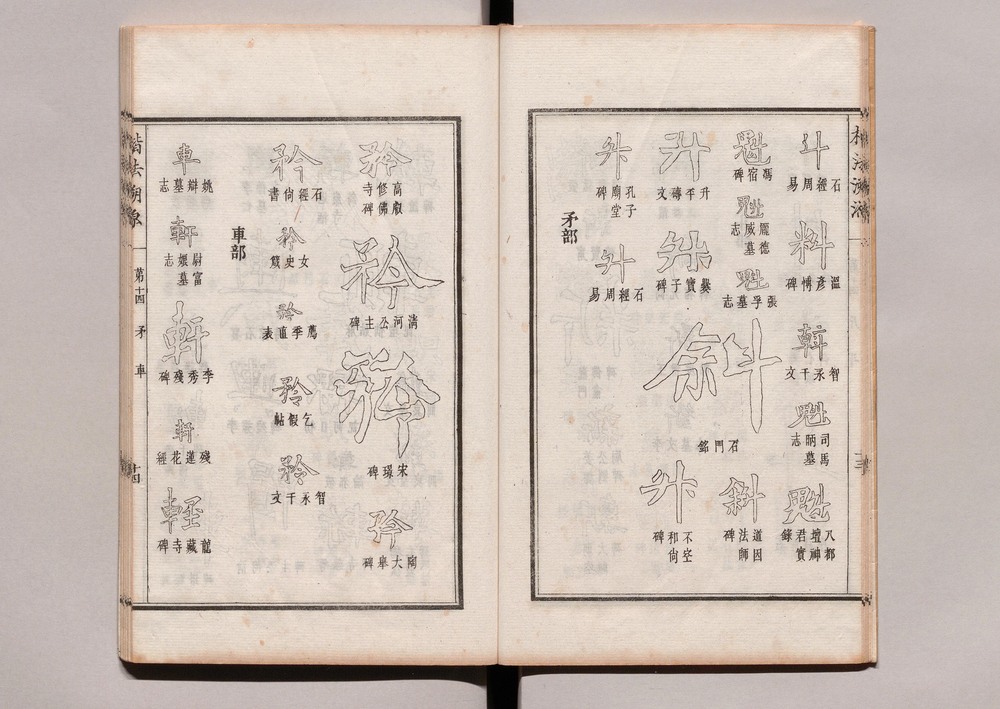 楷法溯源
斗
石經周易
料
溫彥博碑
斡
智永千文
魁
司馬昞墓志
魁
八都壇神君實錄
魁
馮宿碑
魁
龐德威墓志
魁
張孚墓志
斜
石門銘
斜
道因法師碑
升
升平磚文
升
爨寶子碑
升
不空和尚碑
升
孔子廟堂碑
升
石經周易
矛部
矜
高叡修佛寺碑
矜
淸河公主碑
矜
宋璟碑
矜
陶大舉碑
矜
石經尙書
矜
女史箴
矜
薦季直表
矜
乞假帖
矜
智永千文
車部
車
姚辯墓志
軒
尉富娘墓志
軒
李秀殘碑
軒
殘蓮花經
輕
龍藏寺碑
楷法溯源
第十四 矛 車
十四